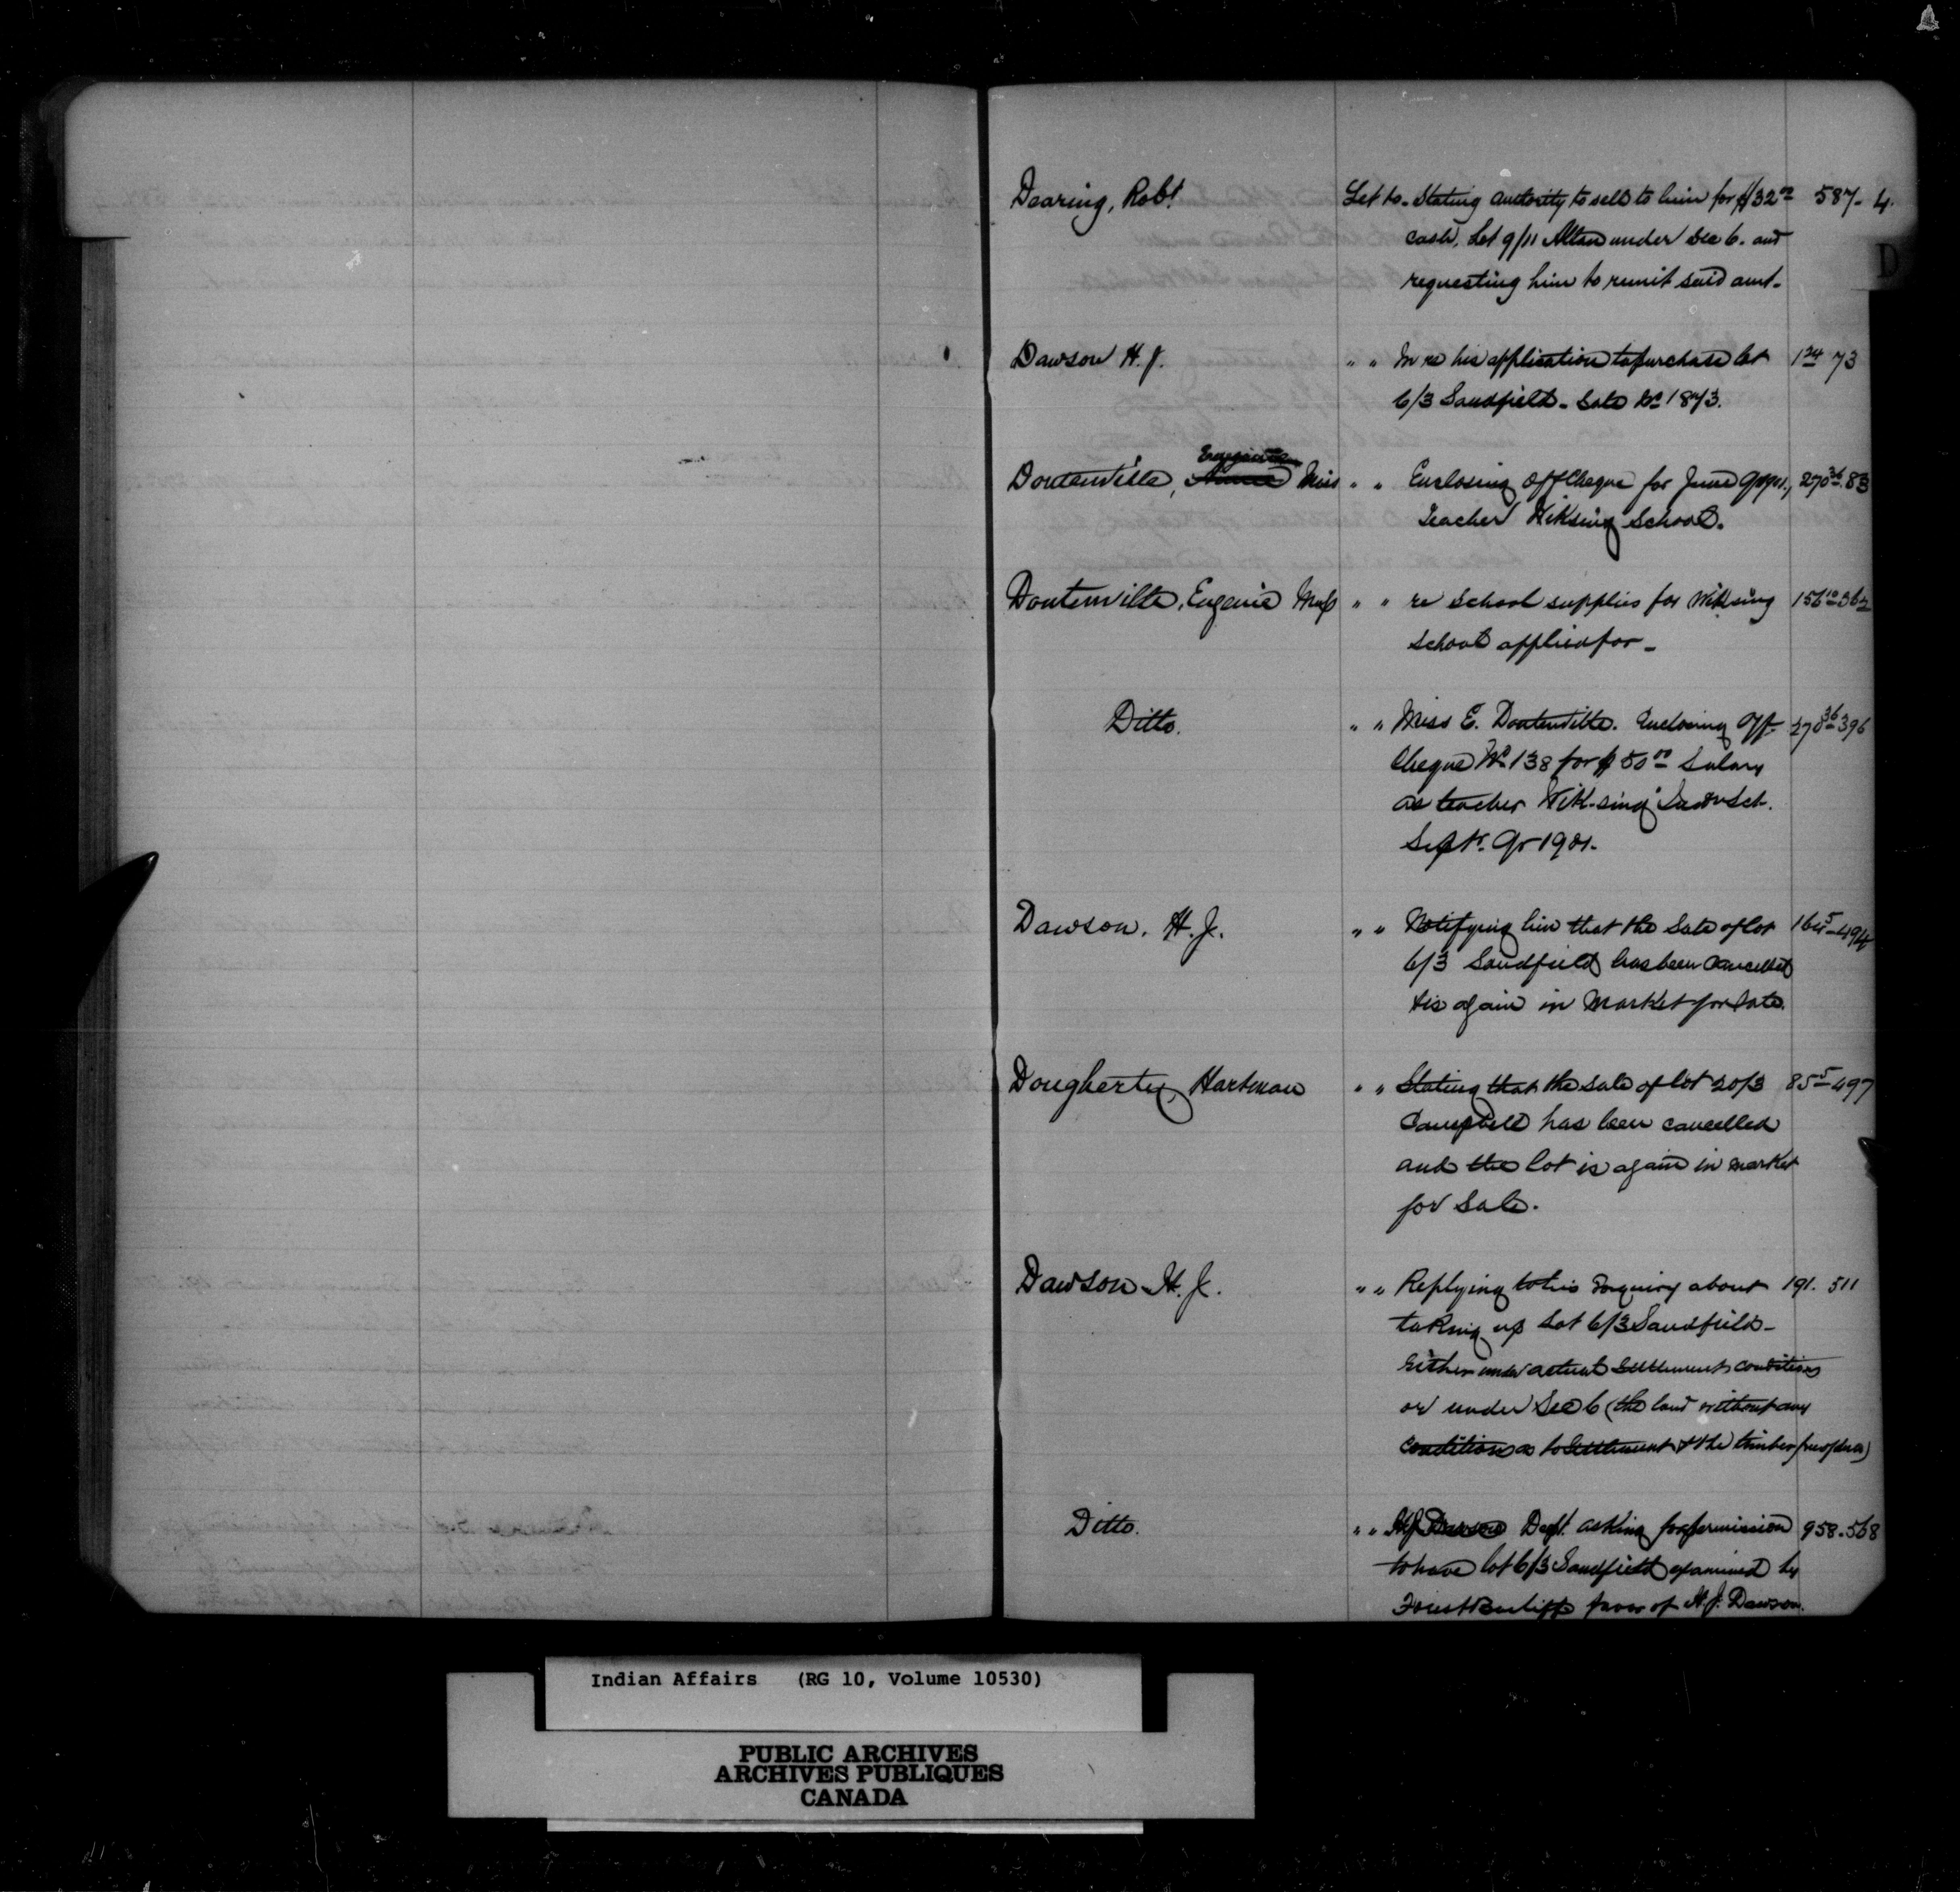 Dearing, Robt. Let to - Stating authority to sell to him for $32.00 587 - 4
cash, Lot 9/11 Allan under Sec 6. and
requesting him to remit said amt.
D
Dawson H. J. " " In re his application to purchase lot 124 73
6/3 Sandfield - Sale No 1873.
Eugenie
Dontenville, Miss " " Enclosing Off Cheque for June 270 36 83
Teacher Wiksing School.
Dontenville, Eugenie Miss " " re School supplies for Wiksing 156 10 362
School applied for -
Ditto. " " Miss E. Dontenville. Enclosing Off. 270 36 396
Cheque No 138 for $50.00 Salary
as teacher Wik-sing Sch.
Sept. Qr 1901.
Dawson, H. J. " " Notifying him that the Sale of lot 164 5 494
6/3 Sandfield has been Cancelled
& is again in Market for sale.
Dougherty, Hartman " " Stating that the sale of lot 20/3 85 5 497
Campbell has been cancelled
and the lot is again in market
for Sale.
Dawson H. J. " " Replying to his Enquiry about 191. 511
taking up Lot 6/3 Sandfield -
Either under actual settlement conditions
or under Sec 6 (the land without any
condition as to settlement & the timber free of dues)
Ditto. " " Dept. asking for permission 958-568
to have lot 6/3 Sandfield examined by
Forest Bailiff favor of H. J. Dawson.
Indian Affairs (RG 10, Volume 10530)
PUBLIC ARCHIVES
ARCHIVES PUBLIQUES
CANADA